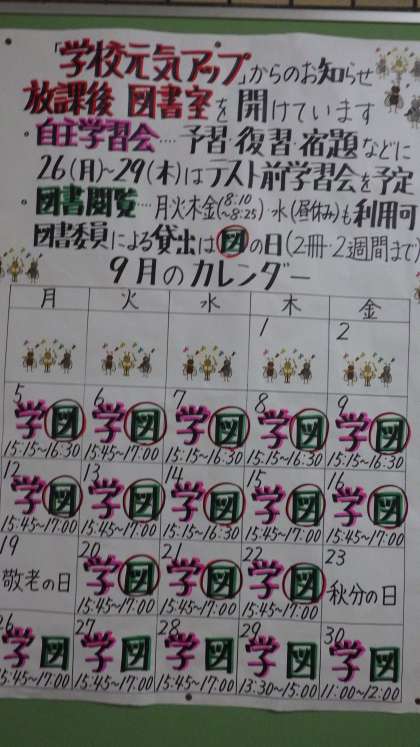 「学校元気アップ」からのお知らせ
放課後 図書室を開けています
・自主学習会‥‥予習・復習・宿題などに
26(月)~29(木)はテスト前学習会を予定
・図書閲覧‥‥月火木金(8:10~8:25)・水(昼休み)も利用可
図書委員による貸出は図の日(2冊・2週間まで)
9月のカレンダー
月 火 水 木 金
1 2
5 6 7 8 9
学図 学図 学図 学図 学図
15:15~16:30 15:45~17:00 15:15~16:30 15:15~16:30 15:15~16:30
12 13 14 15 16
学図 学図 学図 学図 学図
15:45~17:00 15:45~17:00 15:15~16:30 15:45~17:00 15:45~17:00
19 20 21 22 23
敬老の日 学図 学図 学図 秋分の日
15:45~17:00 15:45~17:00 15:45~17:00
26 27 28 29 30
学図 学図 学図 学図 学図
15:45~17:00 15:45~17:00 15:45~17:00 13:30~15:00 11:00~12:00